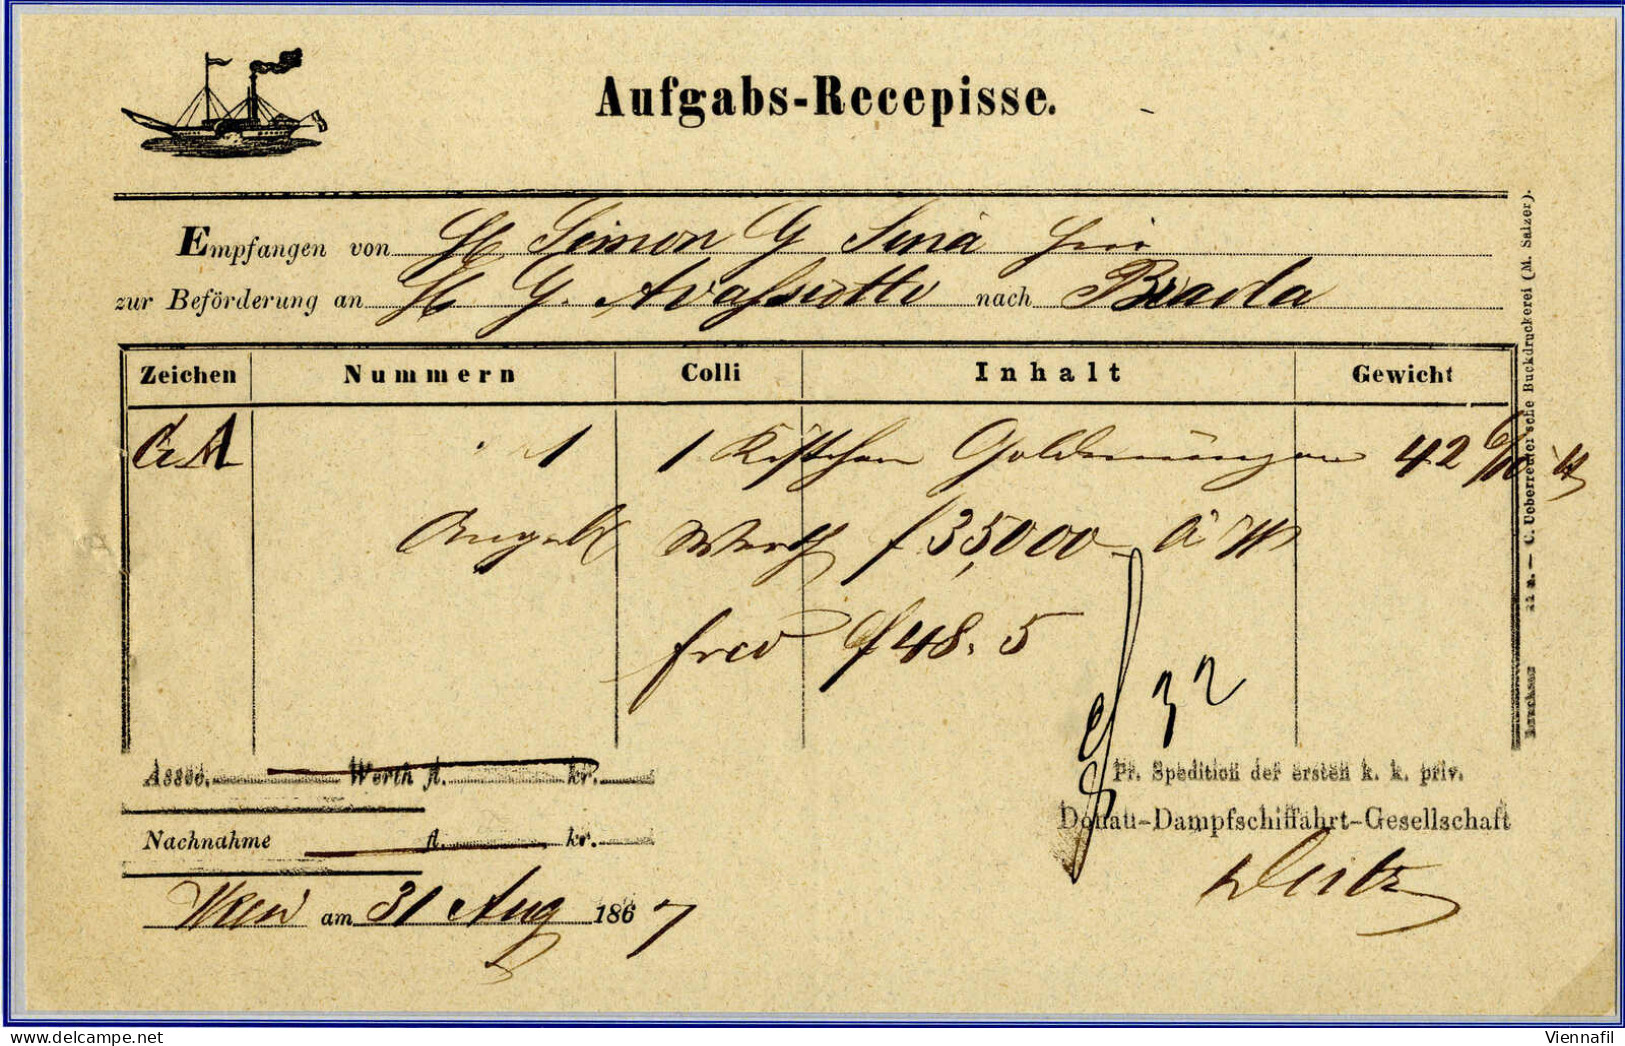 Aufgabs-Recepisse.
Empfangen von H Simon G Sina hier
zur Beförderung an H G. nach Braila
Zeichen Nummern Colli Inhalt Gewicht
GA 1 1 Kistchen Goldmünzen 42
Angebl Werth f 35,000 ö W
frco f 48. 5
32
Assec. Werth fl. kr.
Pr. Spedition der ersten k. k. priv.
Donau-Dampfschiffahrt-Gesellschaft
Nachnahme fl. kr.
Wien am 31 Aug 1867
C. Ueberreuter'sche Buchdruckerei (M. Salzer).
Viennafil